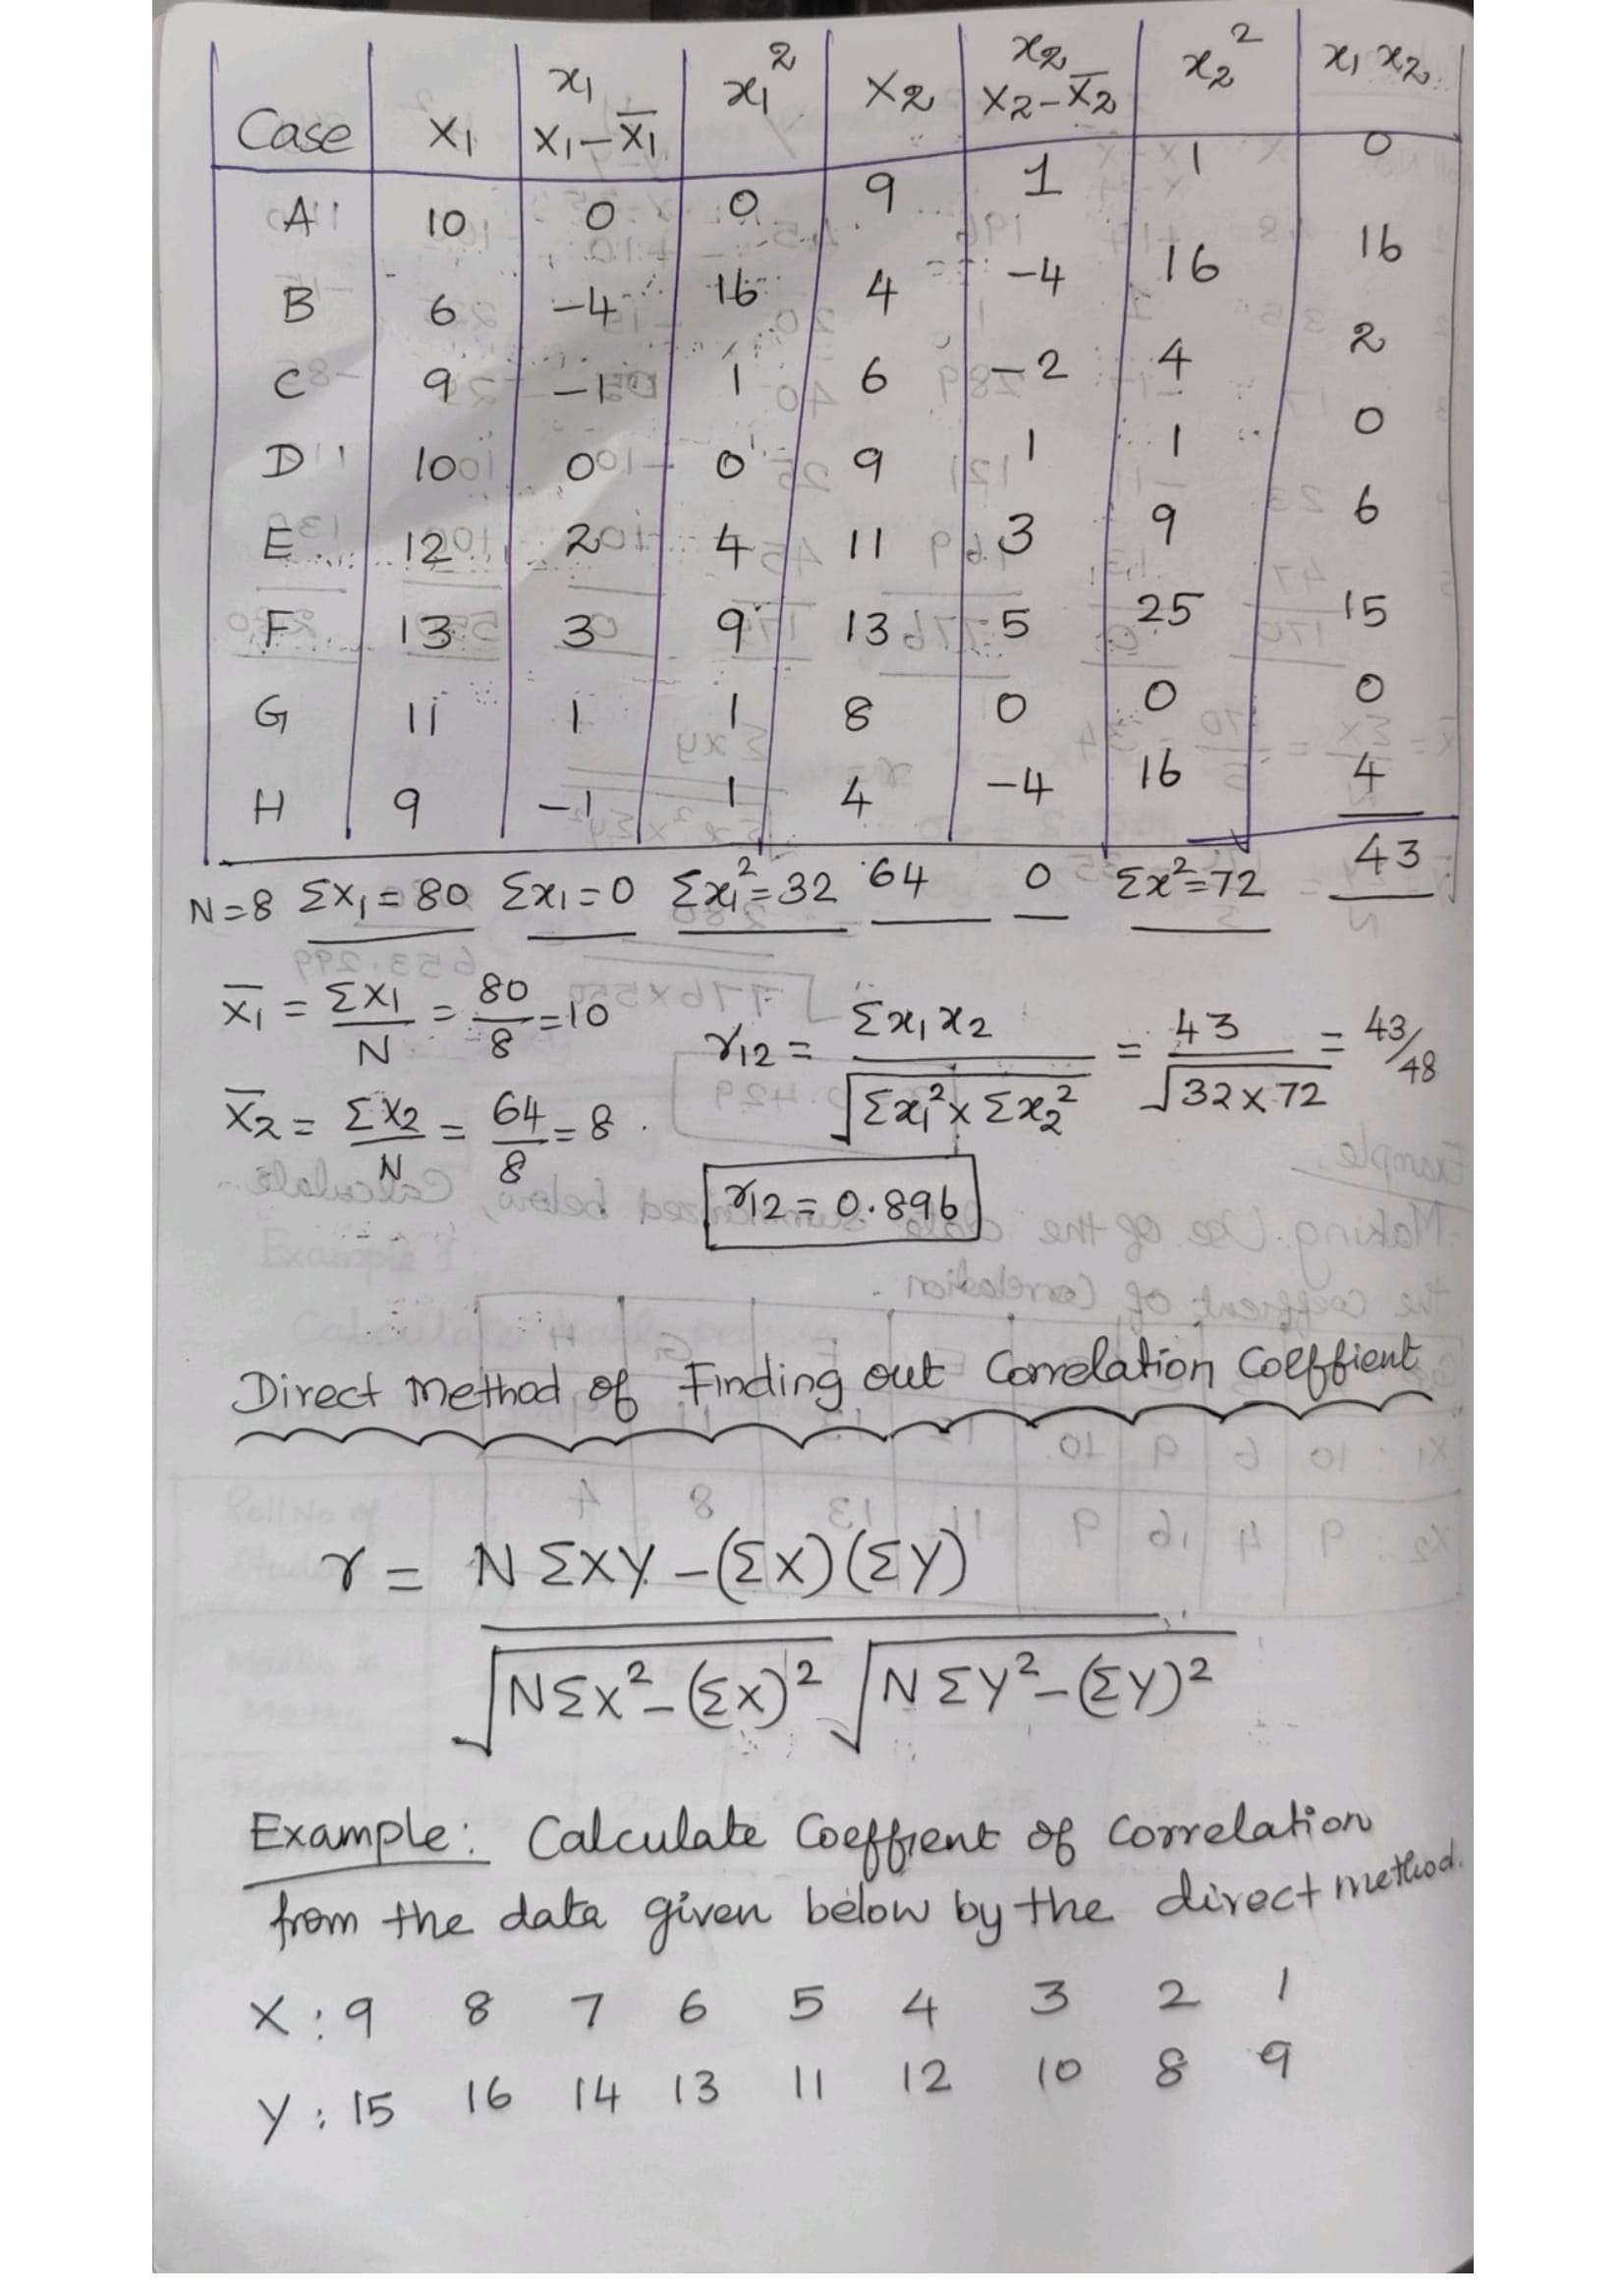 Case X₁ x₁ X₁-X̄₁ x₁² X₂ x₂ X₂-X̄₂ x₂² x₁x₂
A 10 0 0 9 1 1 0
B 6 -4 16 4 -4 16 16
C 9 -1 1 6 -2 4 2
D 10 0 0 9 1 1 0
E 12 2 4 11 3 9 6
F 13 3 9 13 5 25 15
G 11 1 1 8 0 0 0
H 9 -1 1 4 -4 16 4
N=8 ΣX₁=80 Σx₁=0 Σx₁²=32 64 0 Σx²=72 43
X̄₁ = ΣX₁/N = 80/8 = 10
r₁₂ = Σx₁x₂ / √(Σx₁² x Σx₂²) = 43/√(32x72) = 43/48
X̄₂ = ΣX₂/N = 64/8 = 8.
r₁₂ = 0.896
Direct Method of Finding out Correlation Coeffient
r = NΣXY-(ΣX)(ΣY) / √(NΣX²-(ΣX)²) √(NΣY²-(ΣY)²)
Example: Calculate Coeffient of Correlation
from the data given below by the direct method.
X: 9 8 7 6 5 4 3 2 1
Y: 15 16 14 13 11 12 10 8 9